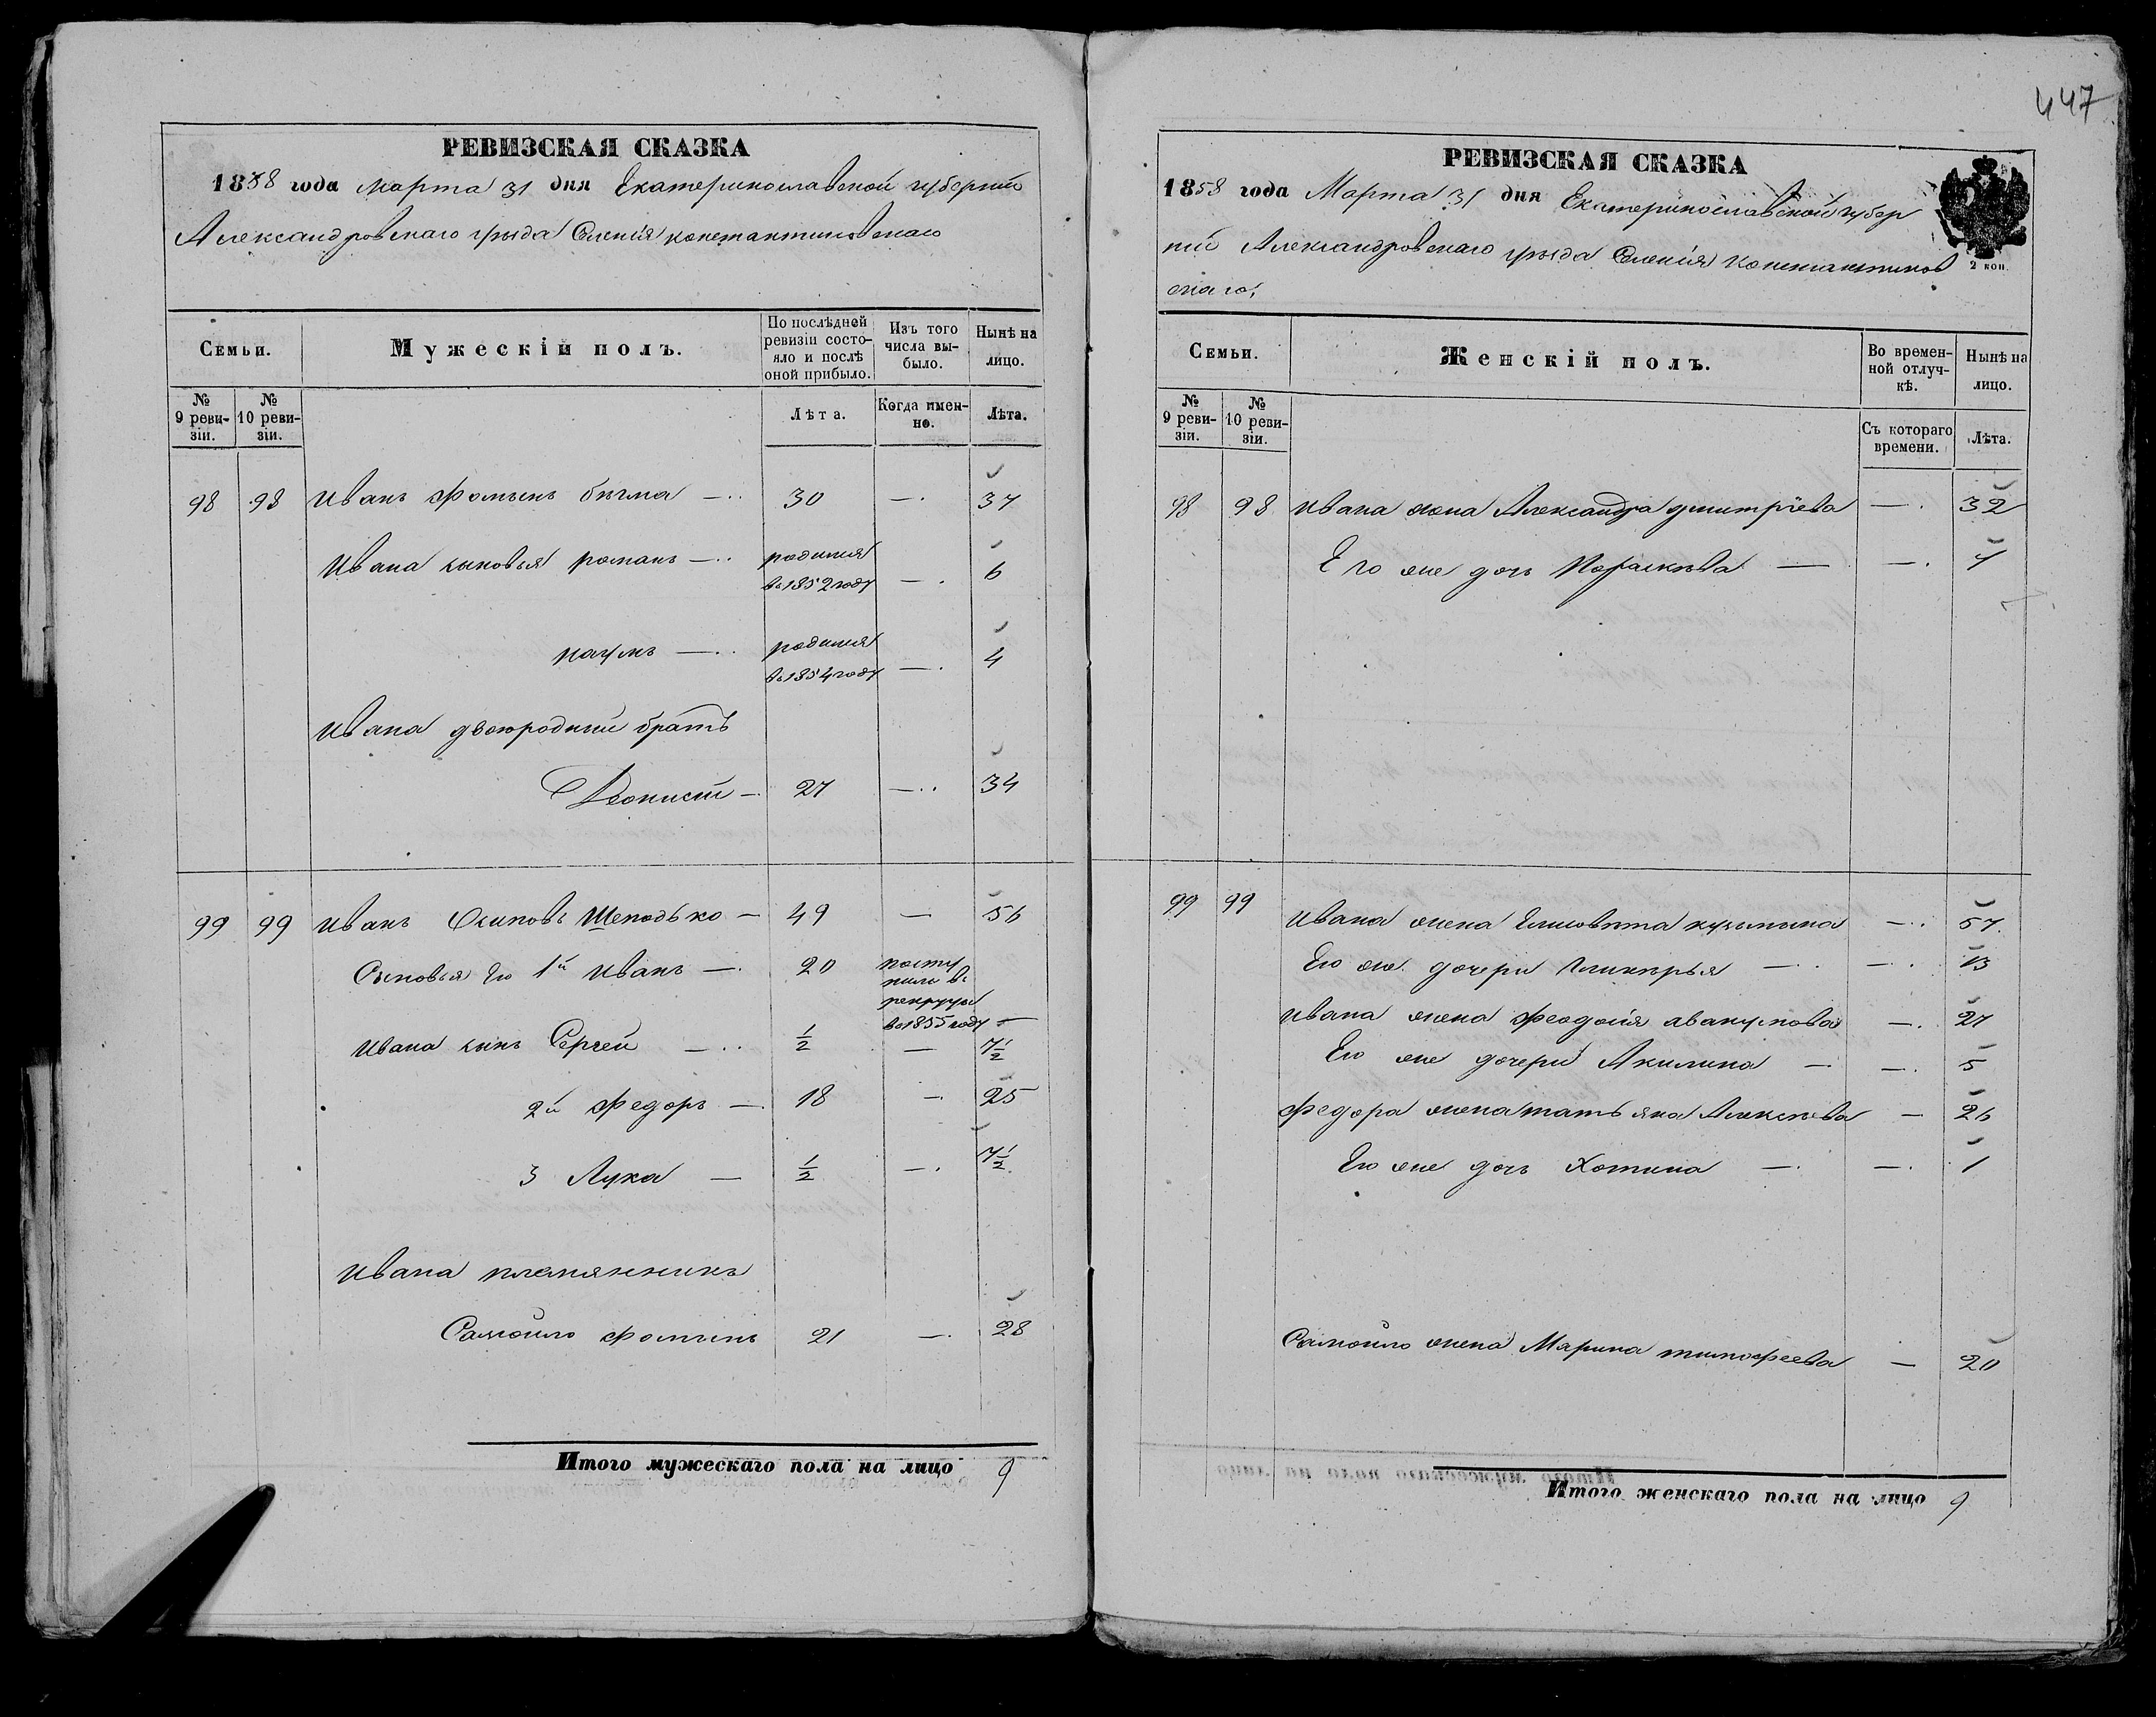 РЕВИЗСКАЯ СКАЗКА
1858 года Марта 31 дня Екатеринославской губернии
Александровскаго уезда Селенія константиновскаго
Семьи.
Мужескій полъ.
По послѣдней ревизіи состояло и послѣ оной прибыло.
Изъ того числа выбыло.
Нынѣ на лицо.
№ 9 ревизіи.
№ 10 ревизіи.
Лѣта.
Когда именно.
Лѣта.
98 98 Иванъ Фоминъ — 30 — 37
Ивана сыновья романъ — родился въ 1852 году — 6
наумъ — родился въ 1854 году — 4
Ивана двоюродный братъ
Деонисій — 27 — 34
99 99 Иванъ Осиповъ Шеподько — 49 — 56
Сыновья Его 1й Иванъ — 20 поступилъ въ рекруты въ 1855 году —
Ивана сынъ Сергей — 1/2 — 7 1/2
2й Федоръ — 18 — 25
3 Лука — 1/2 — 7 1/2
Ивана племянникъ
Самойло Фоминъ 21 — 28
Итого мужескаго пола на лицо 9
447
РЕВИЗСКАЯ СКАЗКА
1858 года Марта 31 дня Екатеринославской губер
нии Александровскаго уезда Селенія Константинов
скаго,
2 коп.
Семьи.
Женскій полъ.
Во временной отлучкѣ.
Нынѣ на лицо.
№ 9 ревизіи.
№ 10 ревизіи.
Съ котораго времени.
Лѣта.
98 98 Ивана жена Александра дмитріева — 32
Его же дочь Параскева — — 7
99 99 Ивана жена Елисовета кузьмина — 57
Его же дочери Гликерья — — 13
Ивана жена Феодосія авакумова — 27
Его же дочери Акилина — — 5
Федора жена татьяна Алексеева — 26
Его же дочь Хотина — — 1
Самойло жена Марина тимофеева — 20
Итого женскаго пола на лицо 9